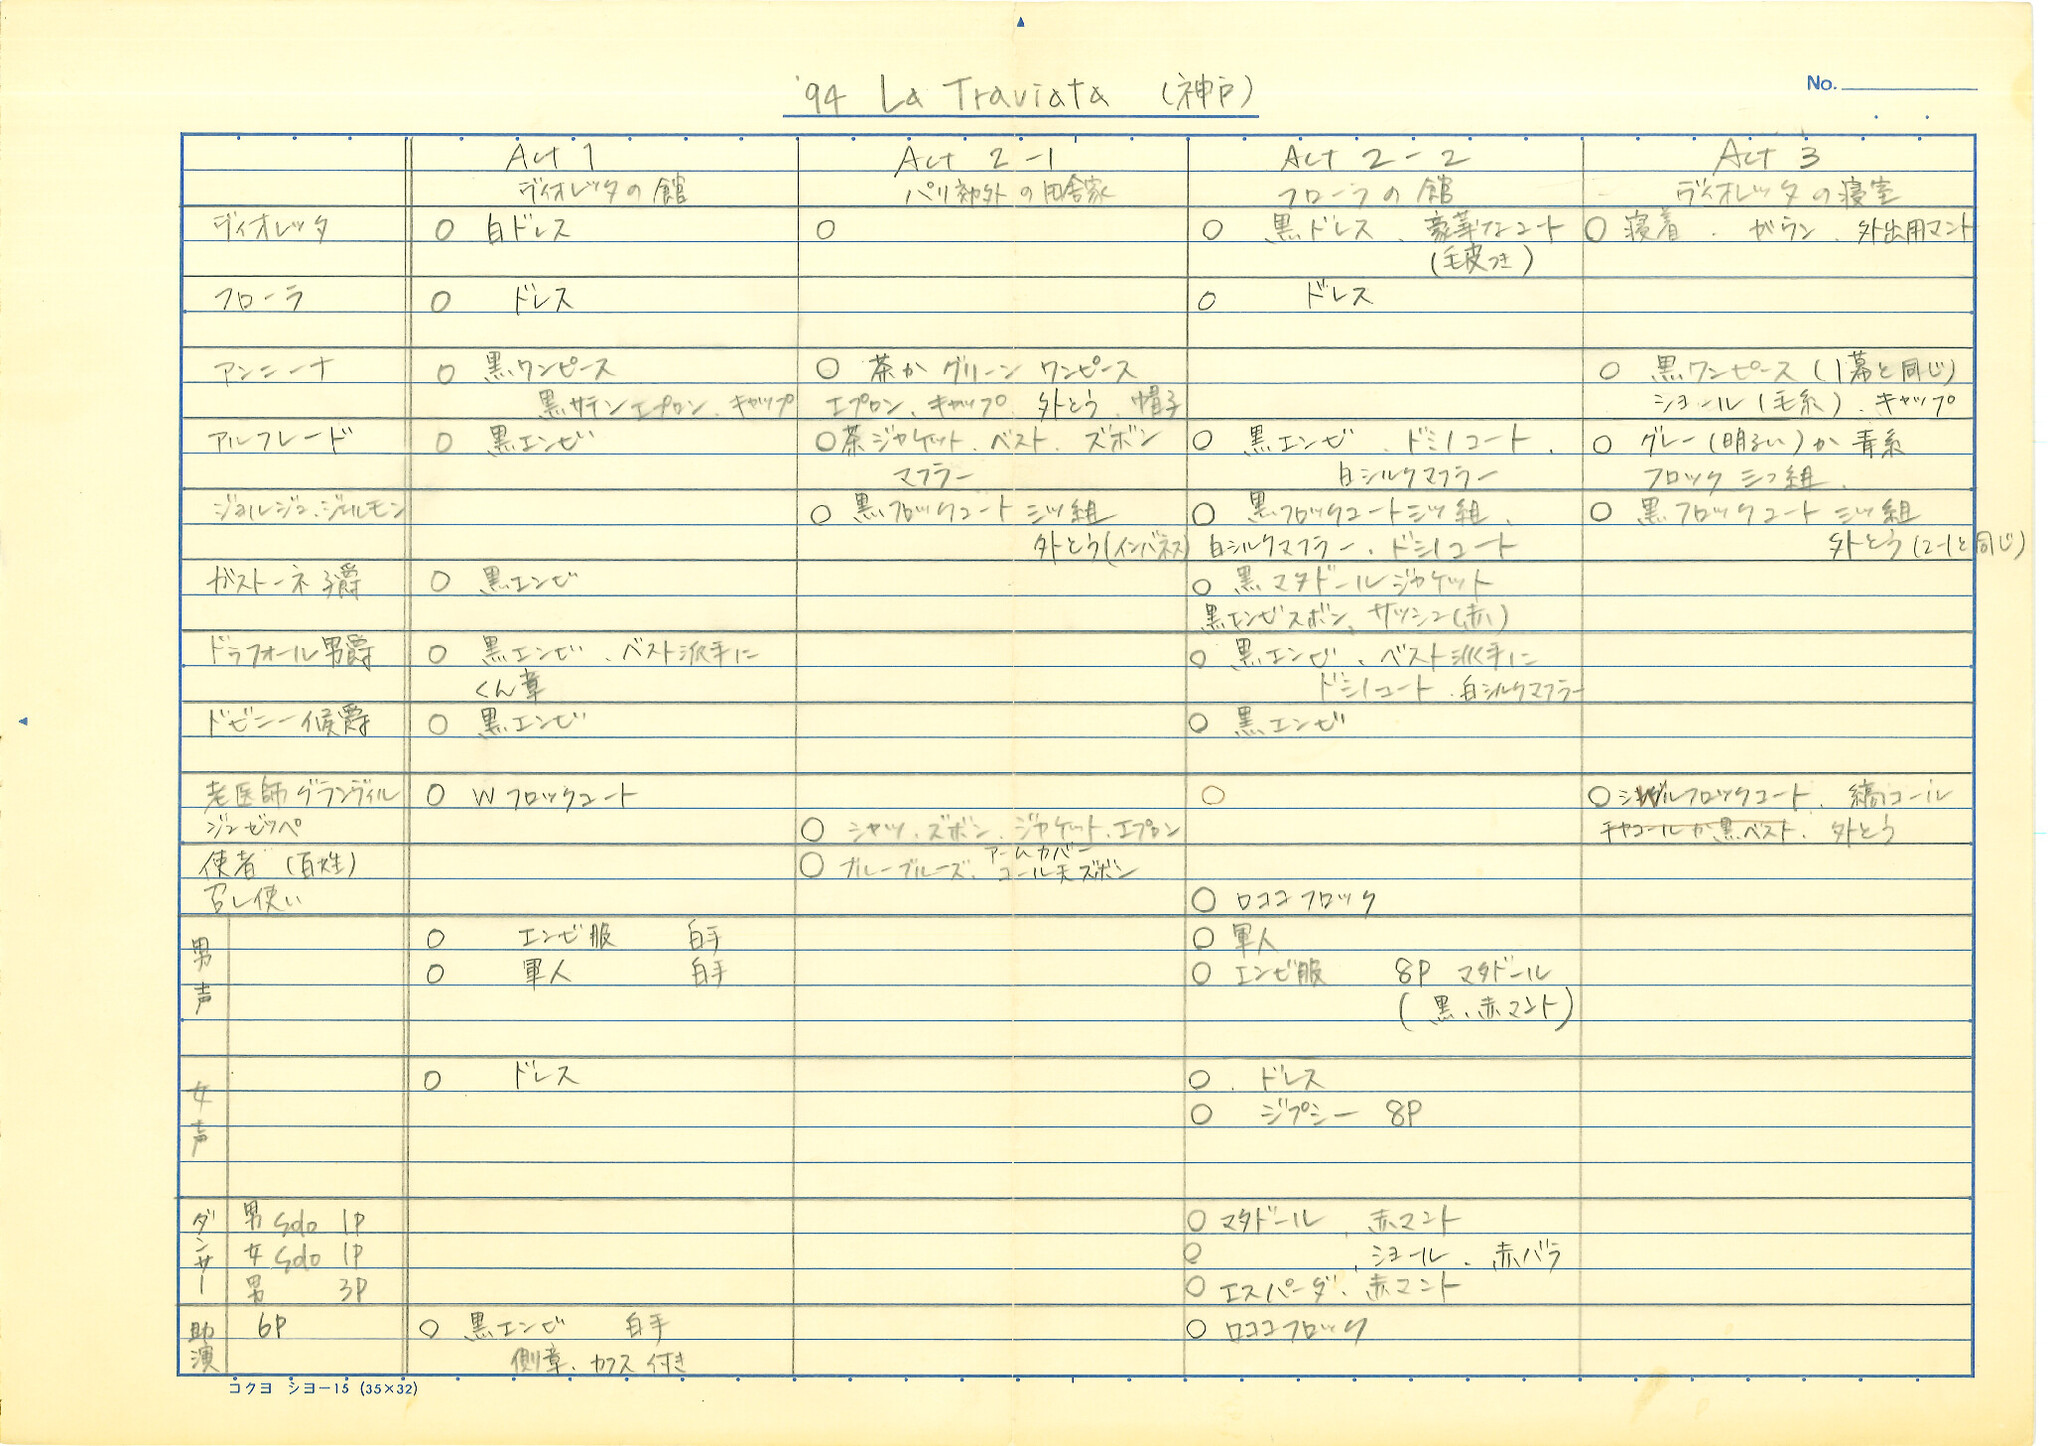 '94 La Traviata (神戸)
No.
Act 1 Act 2-1 Act 2-2 Act 3
ヴィオレッタの館 パリ郊外の田舎家 フローラの館 ヴィオレッタの寝室
ヴィオレッタ ○ 白ドレス ○ ○ 黒ドレス、豪華なコート ○ 寝着、ガウン、外出用マント
(毛皮つき)
フローラ ○ ドレス ○ ドレス
アンニーナ ○ 黒ワンピース ○ 茶か グリーン ワンピース ○ 黒ワンピース (1幕と同じ)
黒サテンエプロン、キャップ エプロン、キャップ、外とう、帽子 ショール (毛糸)、キャップ
アルフレード ○ 黒エンビ ○ 茶ジャケット、ベスト、ズボン ○ 黒エンビ、ドミノコート、 ○ グレー (明るい) か 青系
マフラー 白シルクマフラー フロック 三つ組、
ジョルジュ・ジェルモン ○ 黒フロックコート 三ッ組 ○ 黒フロックコート三ッ組、 ○ 黒フロックコート 三ッ組
外とう(インバネス) 白シルクマフラー、ドミノコート 外とう (2-1と同じ)
ガストーネ子爵 ○ 黒エンビ ○ 黒マタドールジャケット
黒エンビズボン、サッシュ(赤)
ドゥフォール男爵 ○ 黒エンビ、ベスト派手に ○ 黒エンビ、ベスト派手に
くん章 ドミノコート、白シルクマフラー
ドビニー候爵 ○ 黒エンビ ○ 黒エンビ
老医師グランヴィル ○ Wフロックコート ○ ○ シングルフロックコート、縞コール
ジュゼッペ ○ シャツ、ズボン、ジャケット、エプロン チャコールか黒ベスト、外とう
使者 (百姓) ○ ブルーブルーズ、アームカバー コール天ズボン
召し使い ○ ロココフロック
男声 ○ エンビ服 白手 ○ 軍人
○ 軍人 白手 ○ エンビ服 8P マタドール
(黒、赤マント)
女声 ○ ドレス ○ ドレス
○ ジプシー 8P
ダンサー 男 solo 1P ○ マタドール、赤マント
女 solo 1P ○ 、ショール、赤バラ
男 3P ○ エスパーダ、赤マント
助演 6P ○ 黒エンビ 白手 ○ ロココフロック
側章、カフス付き
コクヨ シヨ-15 (35×32)